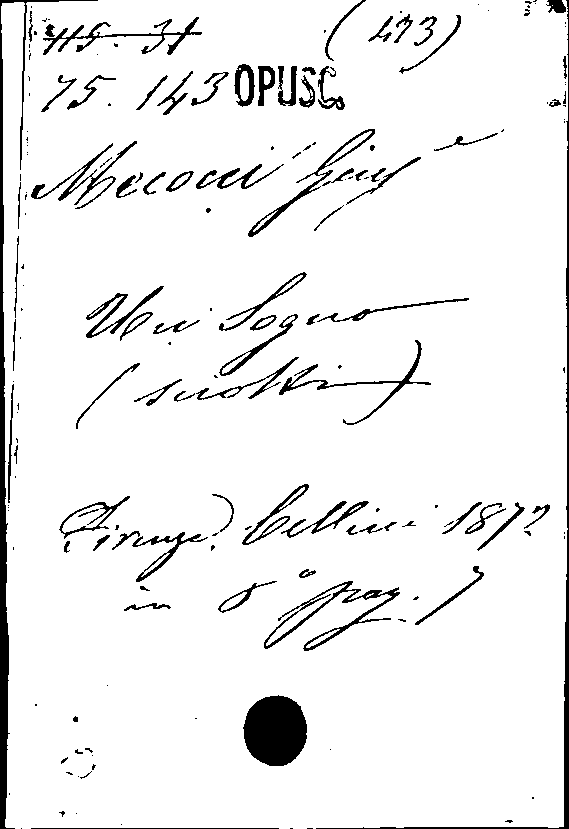 115. 31 (473)
75. 143 OPUSC.
Mecocci Giuse
Un Sogno
(sciolti)
Firenze. Cellini 1872
in 8° pag. 7